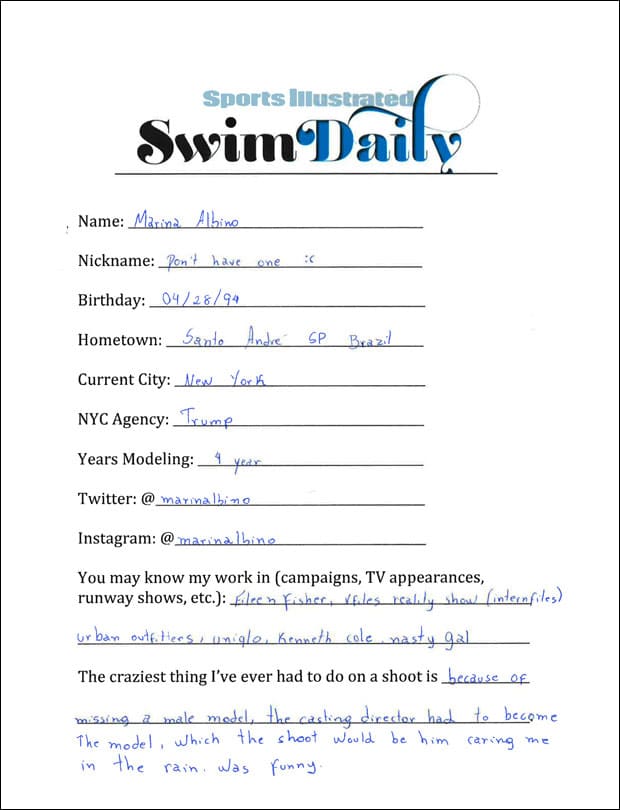 Sports Illustrated
Swim Daily
Name: Marina Albino
Nickname: Don't have one :(
Birthday: 04/28/94
Hometown: Santo André SP Brazil
Current City: New York
NYC Agency: Trump
Years Modeling: 4 year
Twitter: @ marinalbino
Instagram: @marinalbino
You may know my work in (campaigns, TV appearances,
runway shows, etc.): Eileen Fisher, Vfiles reality show (internfiles)
urban outfitters, uniqlo, Kenneth cole. nasty gal
The craziest thing I've ever had to do on a shoot is because of
missing a male model, the casting director had to become
The model, which the shoot would be him caring me
in the rain. was funny.